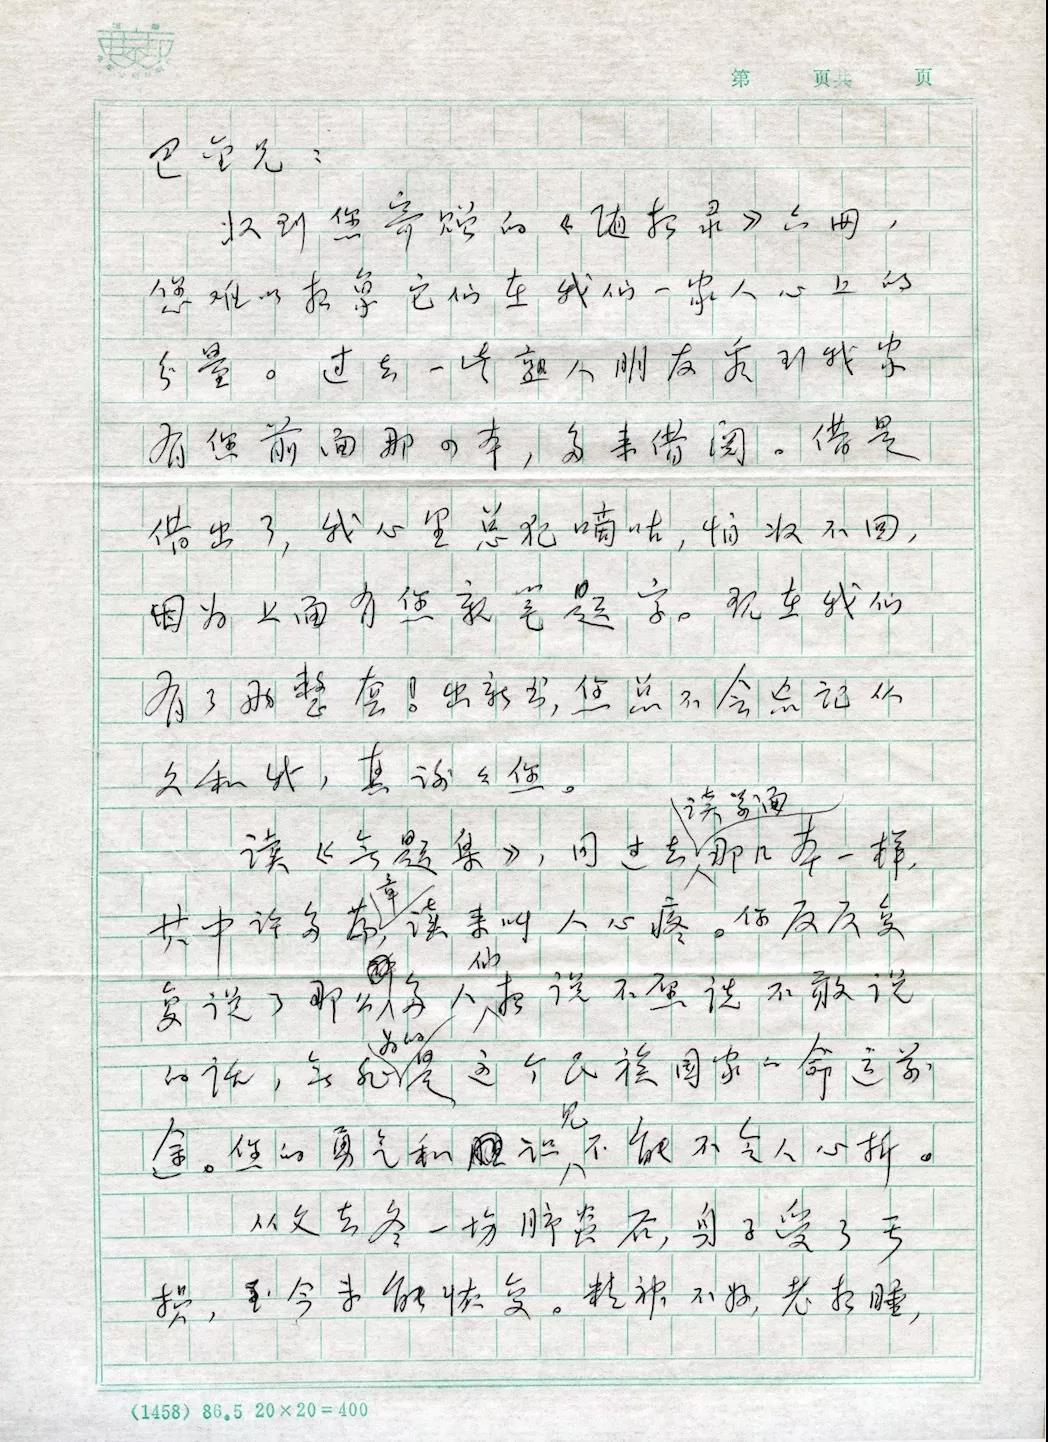 第 页共 页
巴金兄：
收到您寄赠的《随想录》六册，
您难以想象它们在我们一家人心上的
分量。过去一些熟人朋友看到我家
有您前面那四本，多来借阅。借是
借出了，我心里总犯嘀咕，怕收不回，
因为上面有您亲笔题字。现在我们
有了两整套！出新书，您总不会忘记从
文和我，真谢谢您。
读《无题集》，同过去读前面那几本一样，
其中许多篇章，读来叫人心疼。您反反复
复说了那么多人们想说不愿说不敢说
的话，无非为的是这个民族国家的命运前
途。您的勇气和胆识见不能不令人心折。
从文去冬一场肺炎后，身子受了亏
损，至今未能恢复。精神不好，老想睡，
(1458) 86.5 20×20=400